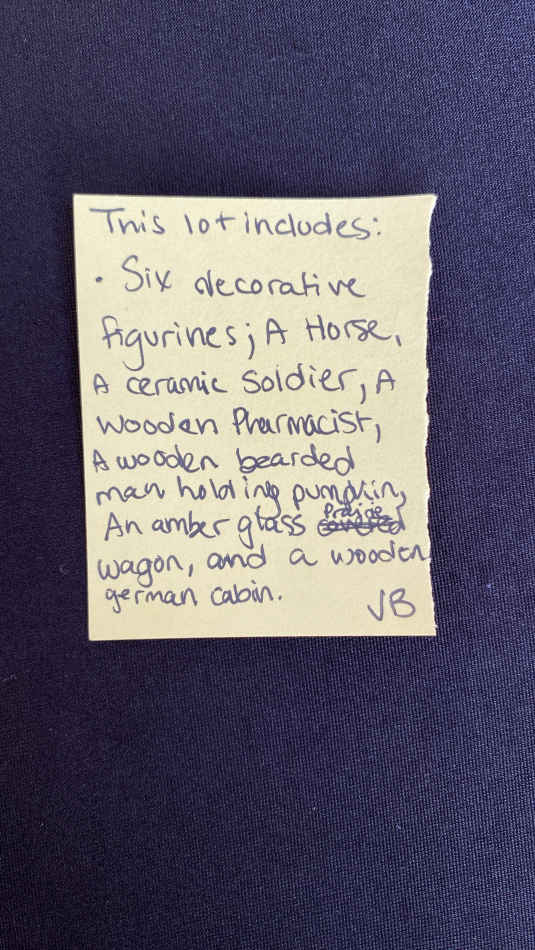 This lot includes:
• Six decorative
figurines; A Horse,
A ceramic Soldier, A
Wooden Pharmacist,
A wooden bearded
man holding pumpkin,
An amber glass covered Prairie
wagon, and a wooden
german cabin.
VB